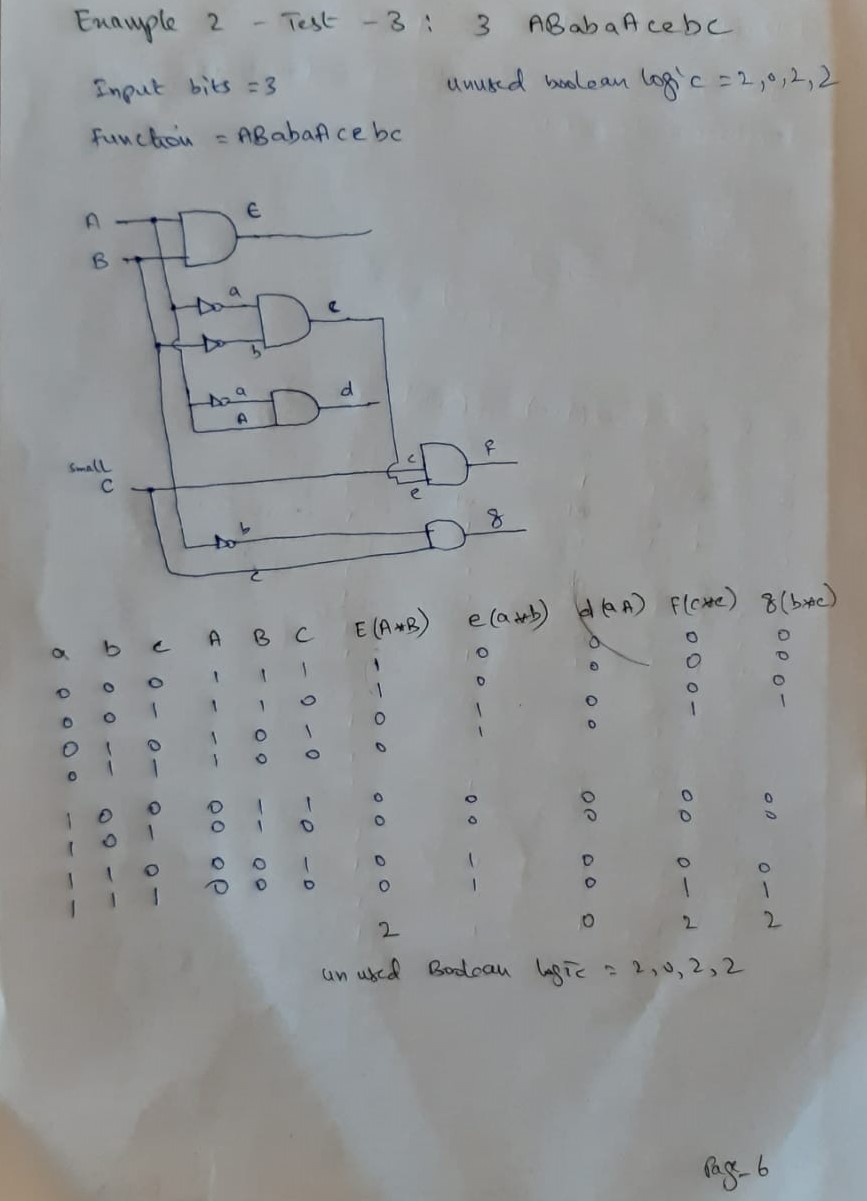 Example 2 - Test - 3 : 3 ABabaAcebc
Input bits = 3 unused boolean logic = 2,0,2,2
Function = ABabaAcebc
A E
B
a e
b
a d
A
small c f
C
e
b g
c
a b c A B C E(A*B) e(a*b) d(aA) f(c*e) g(b*c)
0 0 0 1 1 1 1 0 0 0 0
0 0 1 1 1 0 1 0 0 0 0
0 1 0 1 0 1 0 1 0 0 0
0 1 1 1 0 0 0 1 0 1 1
1 0 0 0 1 1 0 0 0 0 0
1 0 1 0 1 0 0 0 0 0 0
1 1 0 0 0 1 0 1 0 0 0
1 1 1 0 0 0 0 1 0 1 1
2 0 2 2
unused Boolean logic = 2,0,2,2
Page-6